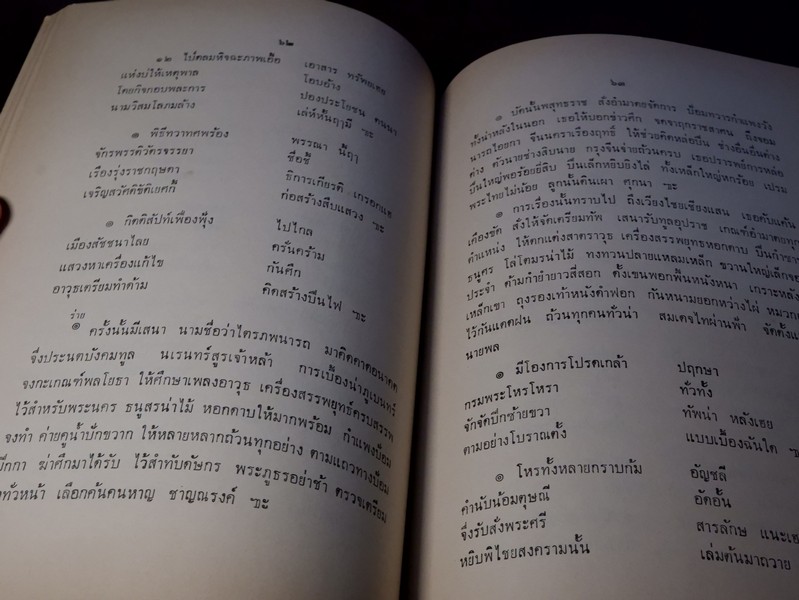 ๖๒
๑๒ ไปถลมหึจฉะภาพเยื้อ เอาสาร ทรัพยเฮย
แห่งบให้เหตุพาล โอบอ้าง
โดยกิจกอบพละการ ปองประโยชน ตนนา
นามวิสมโลภมล้าง เล่ห์หั้นฤๅมี ฯะ
๏ พิธีทวาทศพร้อง พรรณา นี้ฤๅ
จักรพรรดิวัตรจรรยา ชื่อชี้
เรื่องรุ่งราชกฤษดา ธิการเกียรดิ เกรอกแฮ
เจริญสวัศดิชัติเยศกี้ ก่อสร้างสืบแสวง ฯะ
๏ กิตติสัปท์เฟื่องฟุ้ง ไปไกล
เมืองสัชชนาไลย ครั่นคร้าม
แสวงหาเครื่องแก้ไข กันศึก
อาวุธเตรียมทำด้าม คิดสร้างปืนไฟ ฯะ
ร่าย
๏ ครั้งนั้นมีเสนา นามชื่อว่าไตรภพนารถ มาคิดคาดอนาคต
จึ่งประนตบังคมทูล นเรนทร์สูรเจ้าหล้า การเบื้องน่าภูเบนทร์
จงกะเกณฑ์พลโยธา ให้ศึกษาเพลงอาวุธ เครื่องสรรพยุทธ์ครบสรรพ
ไว้สำหรับพระนคร ธนูสรน่าไม้ หอกดาบให้มากพร้อม กำแพงป้อม
จงทำ ค่ายคูน้ำปักขวาก ให้หลายหลากถ้วนทุกอย่าง ตามแถวทางป้อม
ปีกกา ฆ่าศึกมาได้รับ ไว้สำทับดัษกร พระภูธรอย่าช้า ตรวจเตรียม
ทั่วหน้า เลือกค้นคนหาญ ชาญณรงค์ ฯะ
๖๓
๏ บัดนั้นพสุทธราช สั่งอำมาตย์จัดการ ป้อมทวารกำแพงวัง
ทั้งน่าหลังในนอก เธอให้บอกข่าวศึก จดจาฤกราชสาตน ถึงจอม
นารถไอยกา จีนนคราเรืองฤทธิ์ ให้ช่วยคิดหล่อปืน ช่างยื่นยืนต่าง
ต่าง ตัวนายช่างสิบนาย กรุงจีนจ่ายถ้วนครบ เธอปรารพภ์การหล่อ
ปืนใหญ่พอร้อยยี่สิบ ปืนเล็กหยิบยิงไล่ ทั้งเหล็กใหญ่หกร้อย เปรม
พระไทยไม่น้อย ลูกนั้นดินเผา ศุกนา ฯะ
๏ การเรื่องนั้นทราบไป ถึงเวียงไชยเชียงแสน เธอคับแค้น
เคืองขัด สั่งให้จัดเตรียมทัพ เสนารับทูลอุปราช เกณฑ์อำมาตยทุก
ตำแหน่ง ให้ตกแต่งสาตราวุธ เครื่องสรรพยุทธหอกดาบ ปืนกำซาบ
ธนูศร โล่โตมรน่าไม้ ทงทวนปลายแหลมเหล็ก ขวานใหญ่เล็กของ
ประจำ ด้ามกำยำยาวสี่สอก ดั้งเขนพอกพื้นหนังหนา เกราะหลัง
เหล็กเขา ถุงรองเท้าหนังคำฟอก กันหนามยอกหว่างไผ่ หมวก
ไว้กันแดดฝน ถ้วนทุกคนทั่วน่า สมเดจไทผ่านฟ้า จัดตั้ง
นายพล
๏ มีโองการโปรดเกล้า ปฤกษา
กรมพระโหรโหรา ทั่วทั้ง
จักจัดปีกซ้ายขวา ทัพน่า หลังเฮย
ตามอย่างโบราณตั้ง แบบเบื้องฉันใด ฯะ
๏ โหรทั้งหลายกราบก้ม อัญชลี
คำนับน้อมดุษณี อัดอั้น
จึ่งรับสั่งพระศรี สารลักษ แนะเฮย
หยิบพิไชยสงครามนั้น เล่มต้นมาถวาย